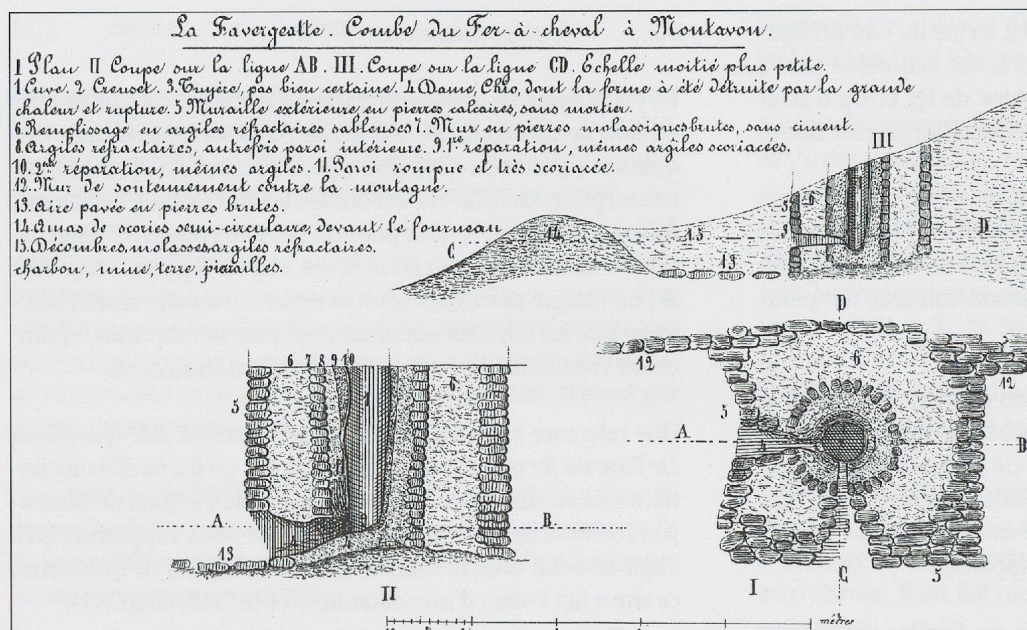 La Favergeatte. Combe du Fer-à-cheval à Montavon.
I Plan II Coupe sur la ligne AB. III. Coupe sur la ligne CD. Echelle moitié plus petite.
1 Cuve. 2 Creuset. 3. Tuyère, pas bien certaine. 4. Dame, Chio, dont la forme à été détruite par la grande
chaleur et rupture. 5 Muraille extérieure en pierres calcaires, sans mortier.
6. Remplissage en argiles réfractaires sableuses 7. Mur en pierres molassiques brutes, sans ciment.
8. Argiles réfractaires, autrefois paroi intérieure. 9. 1re réparation, mêmes argiles scoriacées.
10. 2me réparation, mêmes argiles. 11. Paroi rompue et très scoriacée.
12. Mur de soutennement contre la montagne.
13. Aire pavée en pierres brutes.
14. Amas de scories semi-circulaire, devant le fourneau
15. Décombres, molasses argiles réfractaires,
charbon, mine, terre, pierailles.
III
5 6
3
C 14 15 13 D
D
12 6 12
5
A B
C 5
I
6 7 8 9 10
5 1 6
11
A B
13 4 2
II
mètres